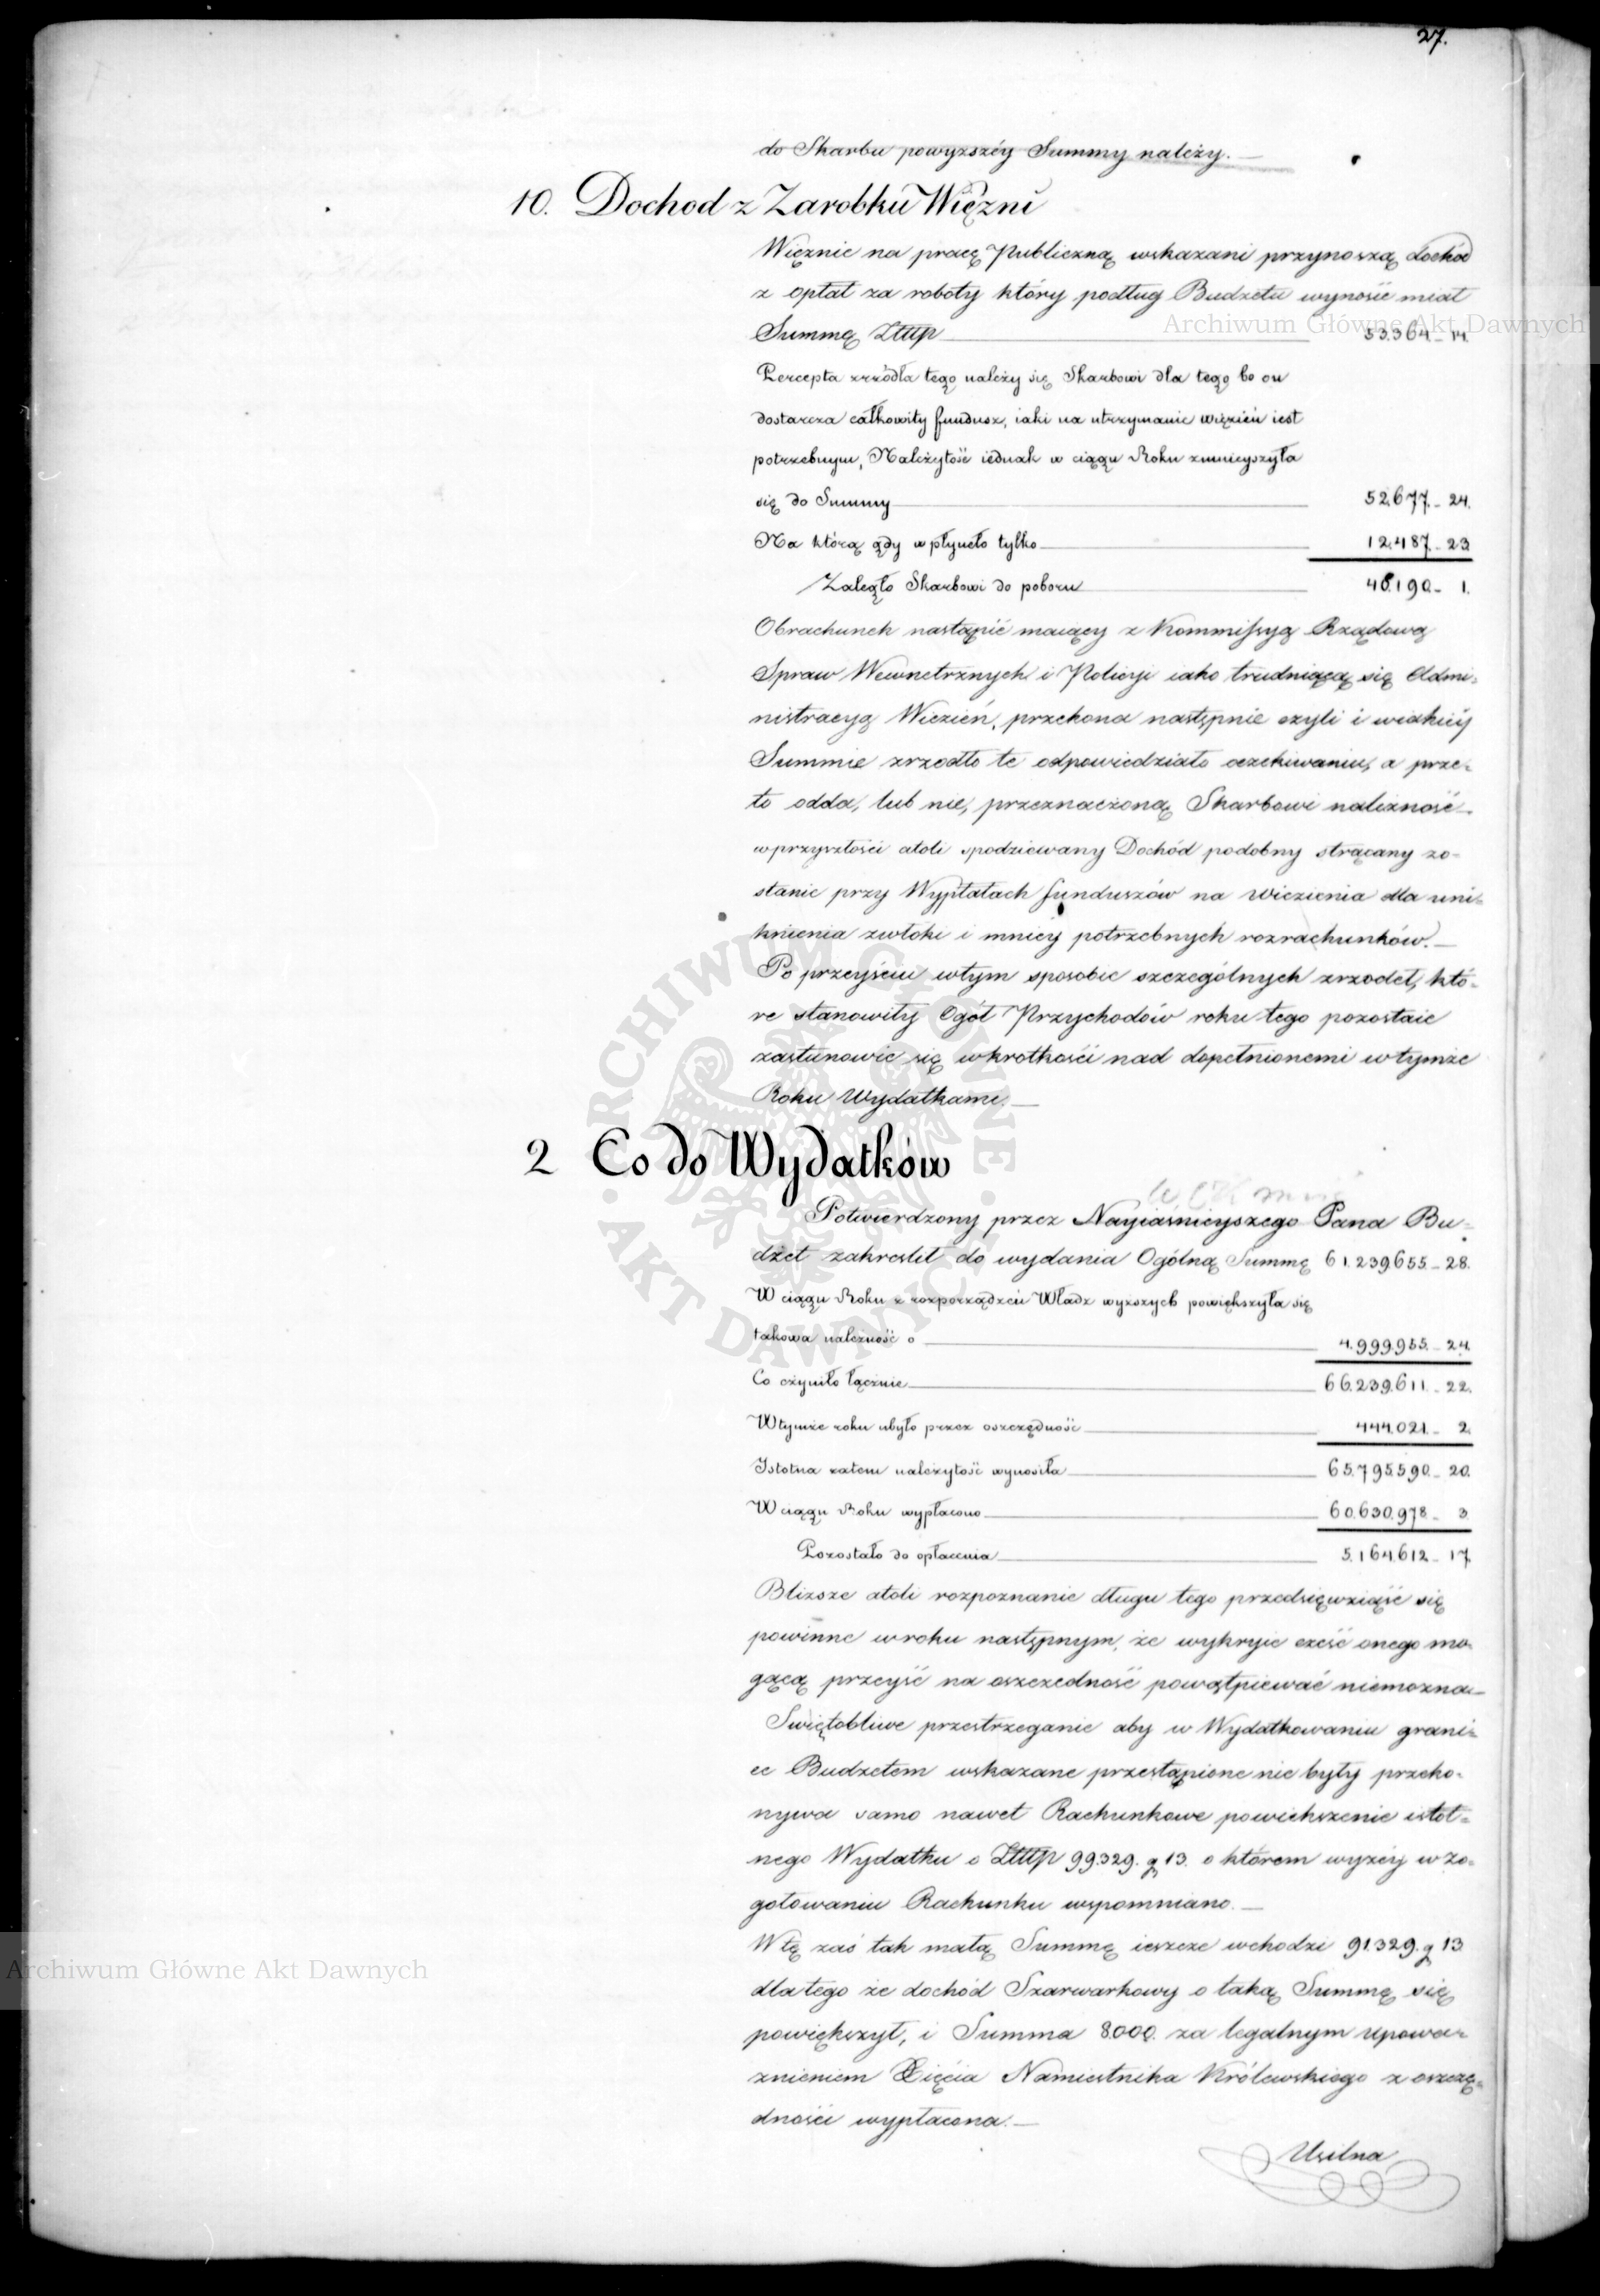 27.
do Skarbu powyzszéy Summy należy.—
10. Dochod z Zarobku Więzni
Więznie na pracę Publiczną wskazani przynoszą dochód
z opłat za roboty który podług Budżetu wynosić miał
Summę Złllp 53.364 – 14.
Percepta zrzódła tego należy się Skarbowi dla tego bo on
dostarcza całkowity fundusz, iaki na utrzymanie więzień iest
potrzebnym, Należytość iednak w ciągu Roku zmnieyszyła
się do Summy 52.677. – 24.
Na którą gdy wpłyneło tylko 12.487 – 23
Zaległo Skarbowi do poboru 40.190 – 1.
Obrachunek nastąpić maiący z Kommissyą Rządową
Spraw Wewnetrznych i Policyi iako trudniącą się Admi-
nistracyą Wiezień, przekona następnie czyli i wiakiéy
Summie zrzodło te odpowiedziało oczekiwaniu, a prze-
to odda, lub nie, przeznaczoną Skarbowi należność.
wprzyszłości atoli spodziewany Dochód podobny strącany zo-
stanie przy Wypłatach funduszów na wiezienia dla uni-
knienia zwłoki i mniey potrzebnych rozrachunków.—
Po przeyściu wtym sposobie szczególnych zrzodeł, któ-
re stanowiły Ogół Przychodów roku tego pozostaie
zastanowić się wkrotkości nad dopełnionemi wtymże
Roku Wydatkami.—
2 Co do Wydatków
Potwierdzony przez Nayiaśnieyszego Pana Bu-
dżet zakreslił do wydania Ogólną Summę 61.239.655. – 28.
W ciągu Roku z rozporządzeń Władz wyższych powiększyła się
takowa należność o 4.999.955. – 24.
Co czyniło łącznie 66.239.611. – 22.
Wtymże roku ubyło przez oszczędność 444.021. – 2.
Istotna zatem należytość wynosiła 65.795.590. – 20.
W ciągu Roku wypłacono 60.630.978 – 3
Pozostało do opłacenia 5.164.612 – 17
Bliższe atoli rozpoznanie długu tego przedsięwziąść się
powinne w roku następnym, że wykryie cześć onego mo-
gącą przeyść na oszczedność powątpiewać niemożna—
Swiętobliwe przestrzeganie aby w Wydatkowaniu grani-
ce Budżetem wskazane przestąpione nie były przeko-
nywa samo nawet Rachunkowe powiekszenie istot-
nego Wydatku o Złllp 99.329. g 13. o którem wyzéy w Zo-
gotowaniu Rachunku wspomniano.—
W tę zaś tak małą Summę ieszcze wchodzi 91.329. g 13
dla tego że dochód Szarwarkowy o taką Summę się
powiększył, i Summa 8.000. za legalnym upowa-
żnieniem Xięcia Namiestnika Królewskiego z oszczę-
dności wypłacona.—
Usilna
Archiwum Główne Akt Dawnych
Archiwum Główne Akt Dawnych
ARCHIWUM GŁÓWNE
AKT DAWNYCH